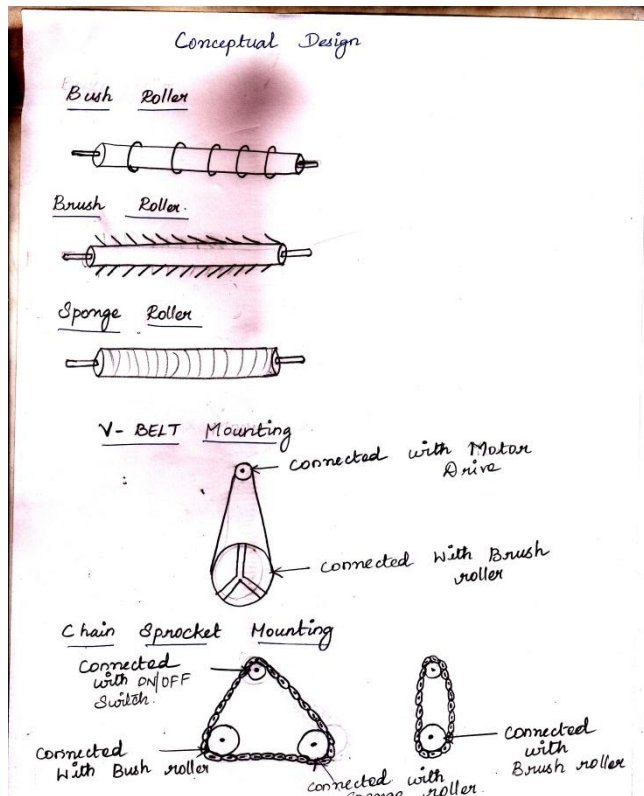 Conceptual Design
Bush Roller
Brush Roller.
Sponge Roller
V- BELT Mounting
connected with Motor
Drive
connected With Brush
roller
Chain Sprocket Mounting
Connected
with ON/OFF
Switch.
Connected
With Bush roller
connected with
Sponge roller.
Connected
with
Brush roller